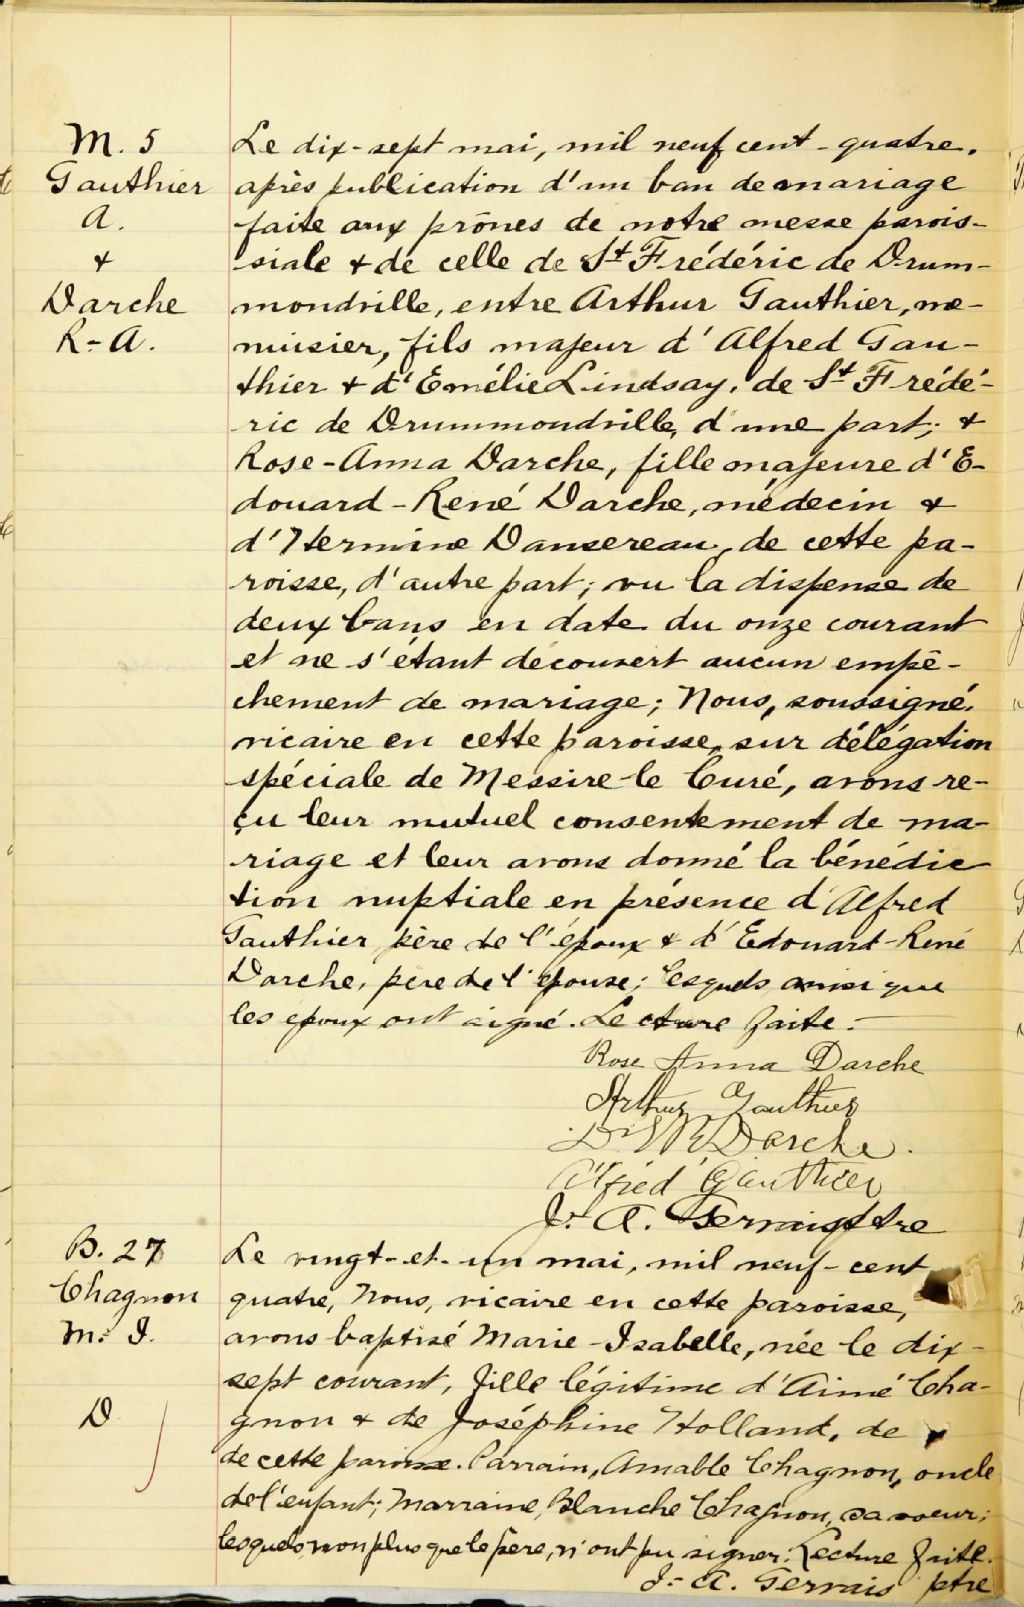 M. 5
Gauthier
A.
+
Darche
R-A.
Le dix-sept mai, mil neuf cent-quatre,
après publication d'un ban de mariage
faite aux prônes de notre messe parois-
siale + de celle de St Frédéric de Drum-
mondville, entre Arthur Gauthier, me-
nuisier, fils majeur d'Alfred Gau-
thier + d'Emélie Lindsay, de St Frédé-
ric de Drummondville, d'une part; +
Rose-Anna Darche, fille majeure d'E-
douard-René Darche, médecin +
d'Hermine Dansereau, de cette pa-
roisse, d'autre part; vu la dispense de
deux bans en date du onze courant
et ne s'étant découvert aucun empê-
chement de mariage; Nous, soussigné,
vicaire en cette paroisse, sur délégation
spéciale de Messire le Curé, avons re-
çu leur mutuel consentement de ma-
riage et leur avons donné la bénédic
tion nuptiale en présence d'Alfred
Gauthier père de l'époux + d'Edouard-René
Darche, père de l'épouse; lesquels ainsi que
les époux ont signé. Lecture faite.-
Rose Anna Darche
Arthur Gauthier
Dr E R Darche.
Alfred Gauthier
J.- A. Gervais ptre
B. 27
Chagnon
M.- I.
D
Le vingt-et-un mai, mil neuf-cent
quatre, Nous, vicaire en cette paroisse,
avons baptisé Marie-Isabelle, née le dix-
sept courant, fille légitime d'Aimé Cha-
gnon + de Joséphine Holland, de
de cette paroisse. Parrain, Amable Chagnon, oncle
de l'enfant; Marraine, Blanche Chagnon, sa soeur;
lesquels, non plus que le père, n'ont pu signer. Lecture faite.
J.- A. Gervais ptre